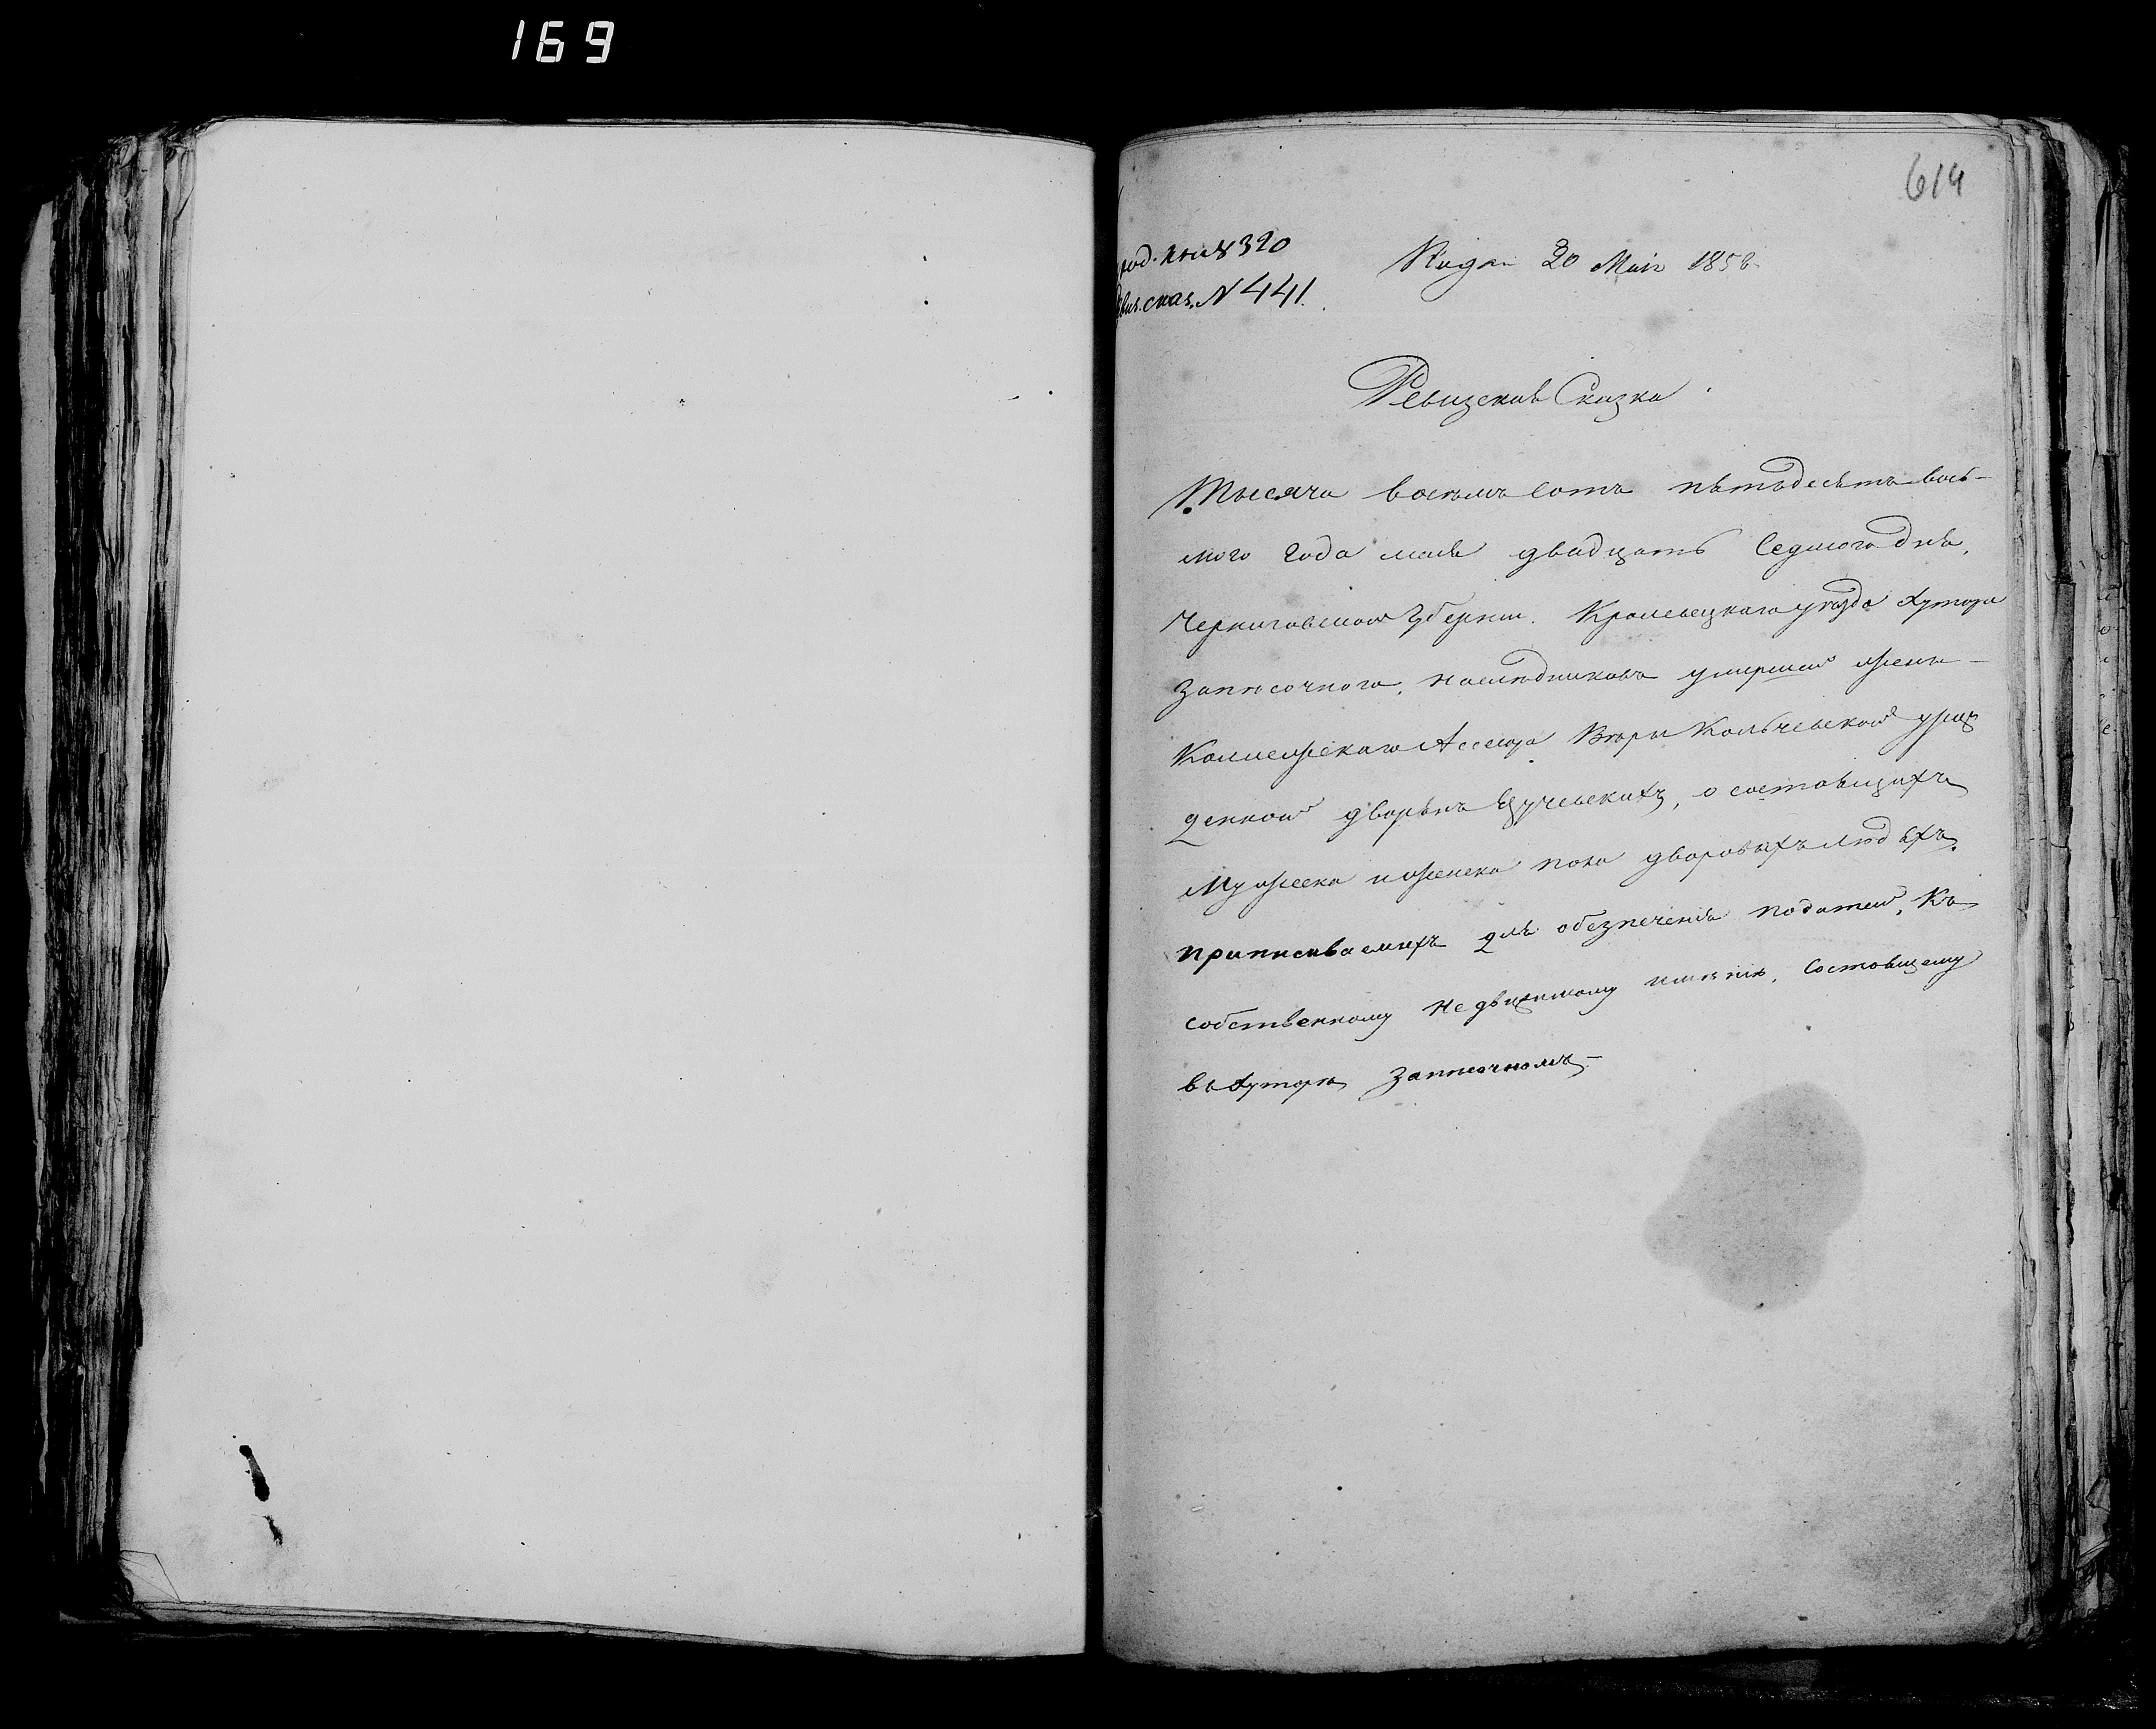 169
614
вход. книг 320
Подан 30 Мая 1858.
ревиз. сказ. N 441.
Ревизская Сказка
Тысяча восемь сотъ пятьдесятъ вось-
мого года мая двадцать седмого дня,
Черниговской Губерніи. Кролевецкаго уѣзда хутора
Запѣсочного, наслѣдниковъ умершей жены
Коллежскаго Ассесора Вѣры Кольчевской урож
денной дворянъ, о состоящихъ
мужеска и женска пола дворовыхъ людяхъ,
приписываемыхъ для обезпеченія податей, къ
собственному недвижимому имѣнію, состоящему
въ хуторѣ Запѣсочномъ-